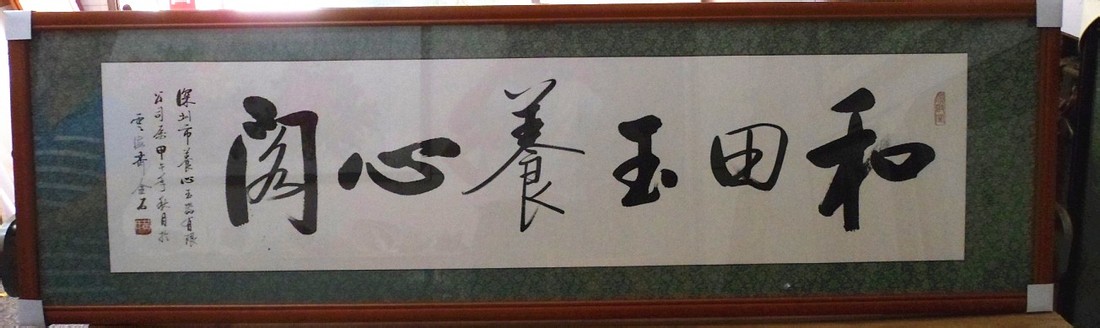 和田玉養心阁
深圳市養心玉器有限
公司属甲午年秋月於
雲海齋金石